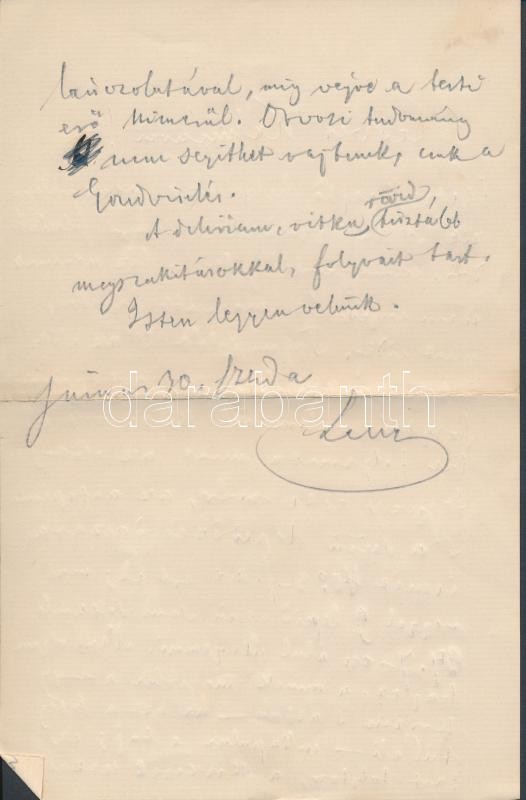 lánczolatával, míg végre a testi
erő kimerül. Orvosi tudomány
nem segíthet rajtunk, csak a
Gondviselés.
A delirium, ritka, rövid, tisztább
megszakításokkal, folyvást tart.
Isten legyen velünk.
Junius 30. Szerda
darabanth